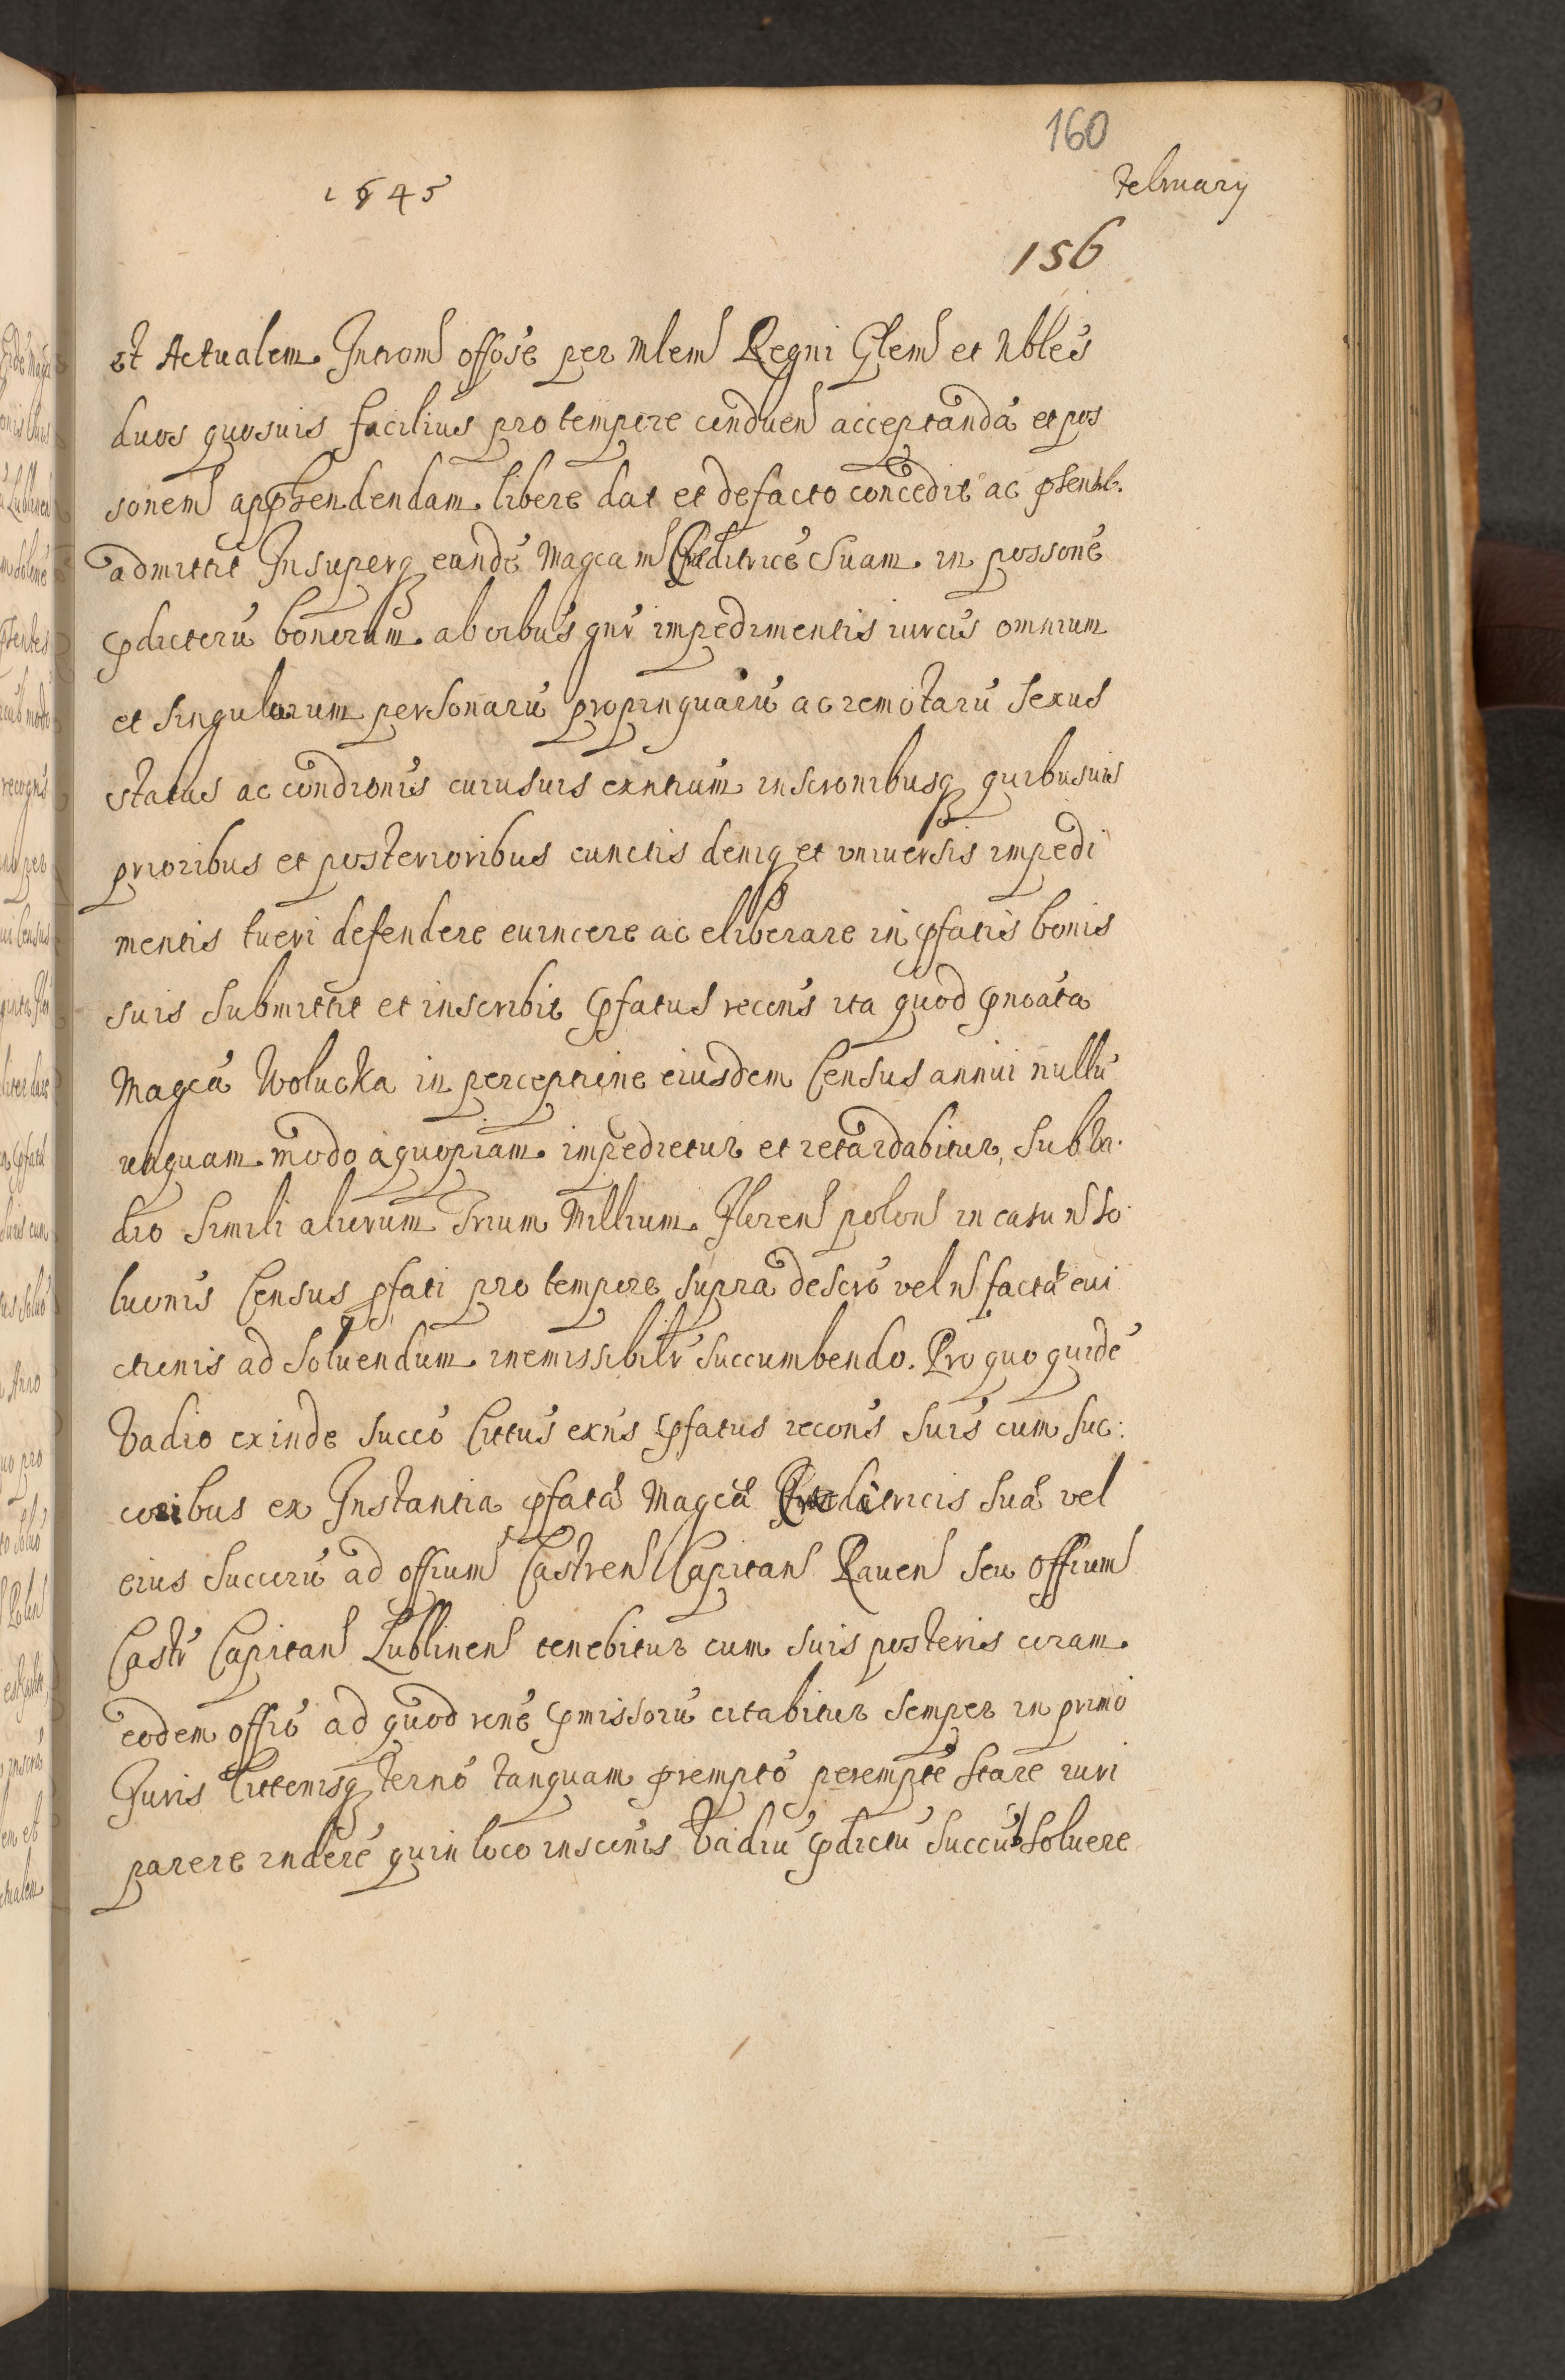 160
1645
February
156
et Actualem Introm offose per mlem Regni Glem et Nbles
duos quosuis facilius pro tempore conduen acceptandā et pos
sonem apphendendam libere dat et defacto concedit ac pħentb.
admittit Insuperq eandē Magcam Creditricē Suam in possonē
pdictorū bonorum ab oibus gnr impedimentis iurcis omnium
et singulorum personarū propinquarū ac remotarū sexus
status ac condionis cuiusuis exntium inscronibusq quibusuis
prioribus et posterioribus cunctis deniq et vniuersis impedi
mentis tueri defendere euincere ac eliberare in pfatis bonis
suis submittit et inscribit pfatus recons ita quod pnoata
Magca Wolucka in perceptione eiusdem Census annui nullū
unquam modo a quopiam impedietur et retardabitur, sub va
dio simili aliorum Trium Millium Floren polon in casu n so
luonis Census pfati pro tempore supra descro vel n facta eui
ctionis ad soluendum inemissibilr succumbendo. Pro quo quidē
Vadio exinde succo Cittus exns pfatus recons suis cum suc:
coribus ex Instantia pfata Magca Creditricis sua vel
eius succorū ad offium Castren Capitan Rauen seu offium
Castr Capitan Lublinen tenebitur cum suis posteris coram
eodem offio ad quod rone pmissorū citabitur semper in primo
Iuris Cittonisq termo tanquam premptō perempte stare iuri
parere indere quin loco insconis Vadiū pdictū succū soluere